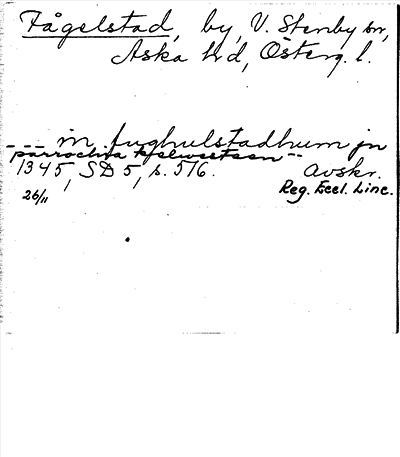 Fågelstad, by, V. Stenby sn,
Aska hd, Österg. l.
--- in fughulstadhum jn
parrochia kyelwesteen --
1345, SD 5, s. 516. Avskr.
26/11 Reg. Eccl. Linc.